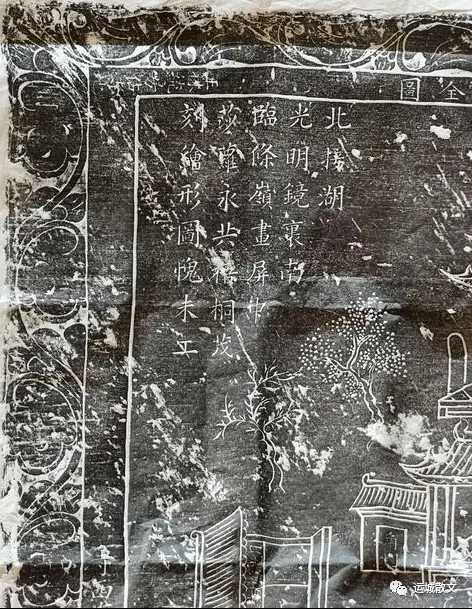 全圖
北接湖
光明鏡裏南
臨條嶺畫屏中
莎蘿永共梧桐茂
刻繪形圖愧未工
运城散文